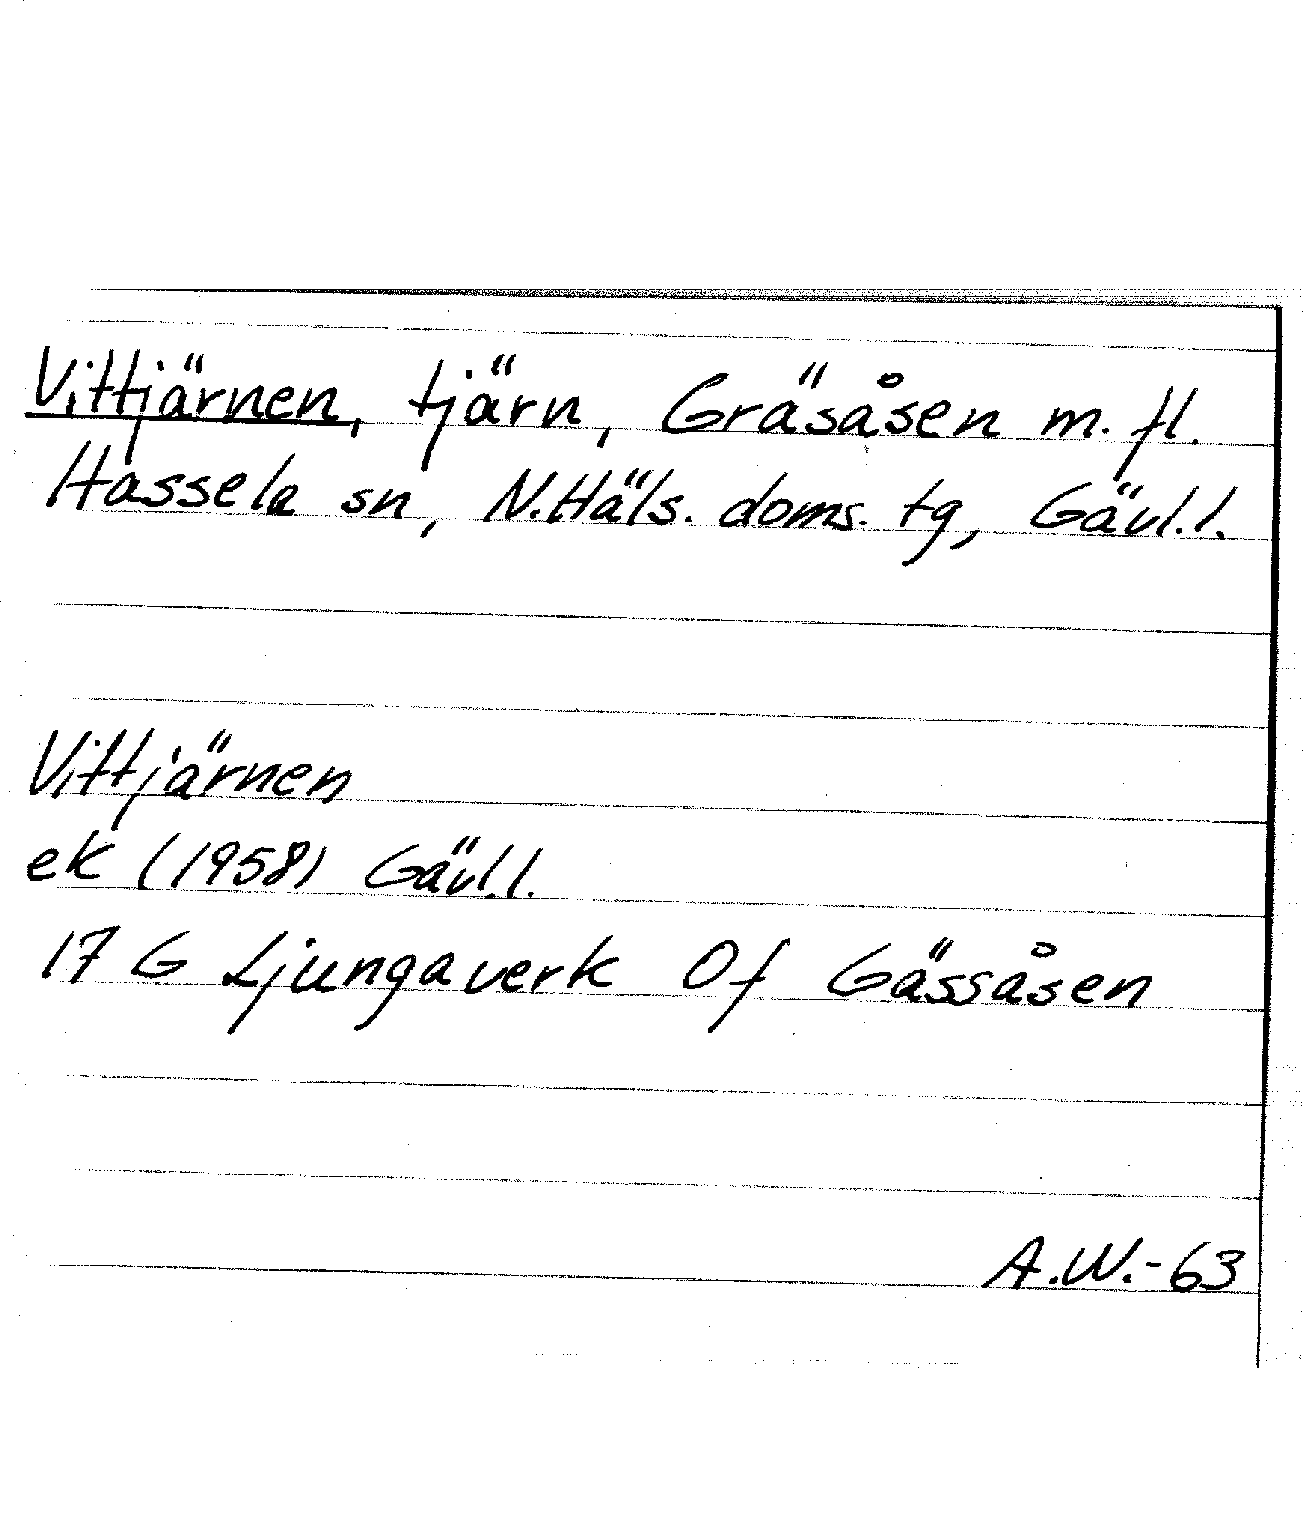 Vittjärnen, tjärn, Gräsåsen m. fl.
Hassela sn, N.Häls. doms. tg, Gävl.l.
Vittjärnen
ek (1958) Gävl.l.
17 G Ljungaverk Of Gässåsen
A.W.-63